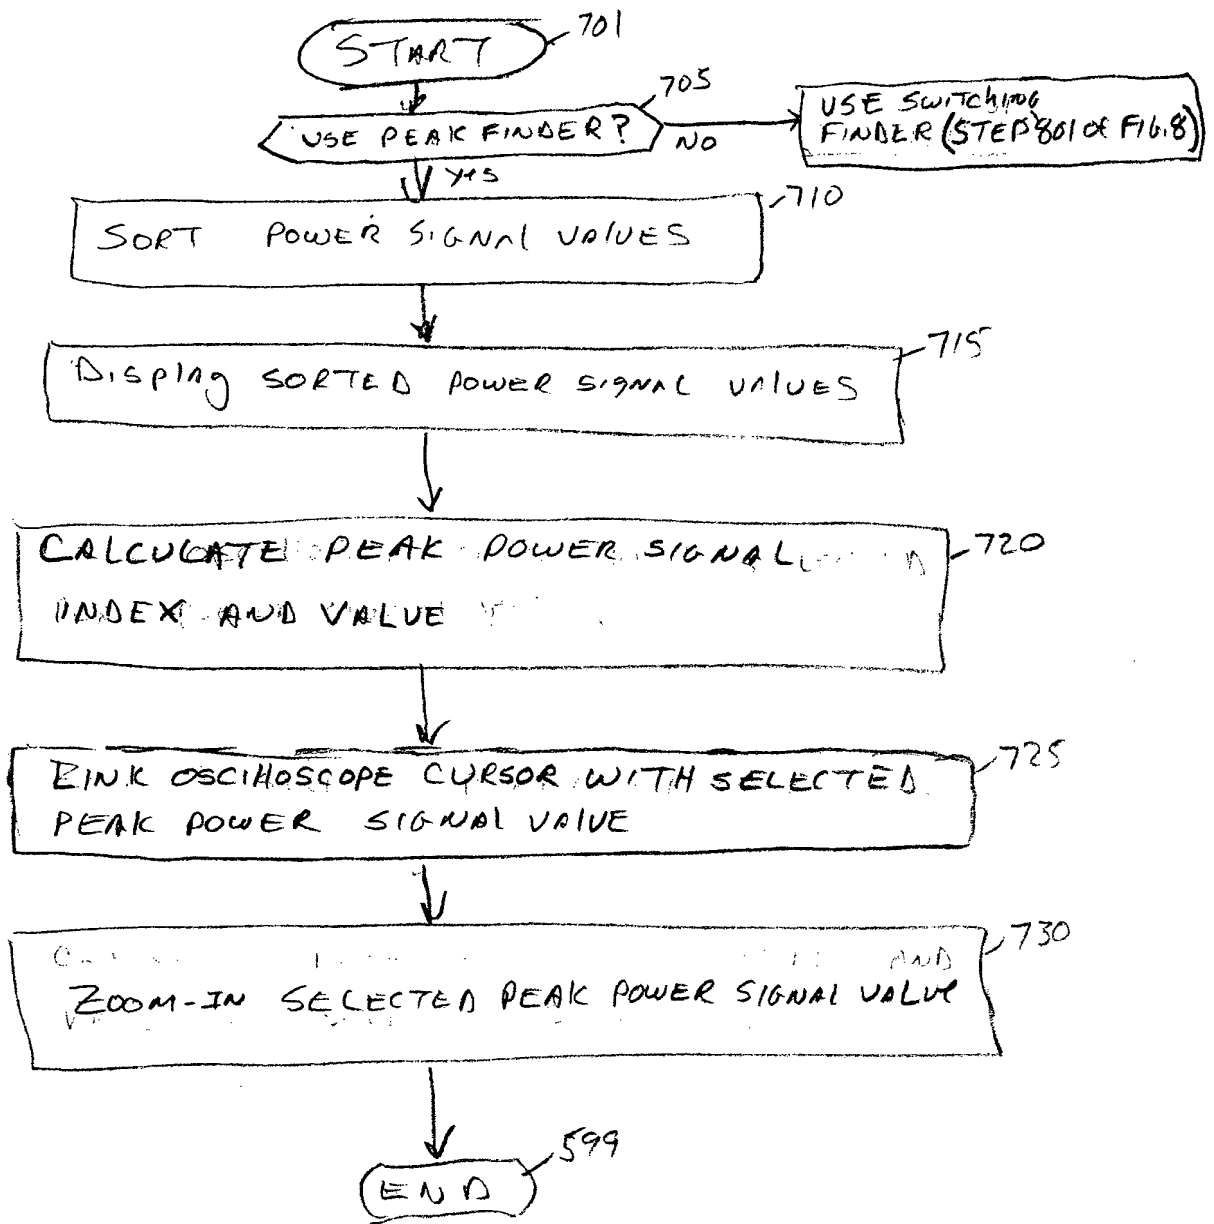 START
701
705
USE PEAK FINDER?
NO
USE SWITCHING
FINDER (STEP 801 OF FIG. 8)
Yes
710
SORT POWER SIGNAL VALUES
715
Display SORTED POWER SIGNAL VALUES
720
CALCULATE PEAK POWER SIGNAL
INDEX AND VALUE
725
LINK OSCILLOSCOPE CURSOR WITH SELECTED
PEAK POWER SIGNAL VALUE
730
AND
ZOOM-IN SELECTED PEAK POWER SIGNAL VALUE
599
END